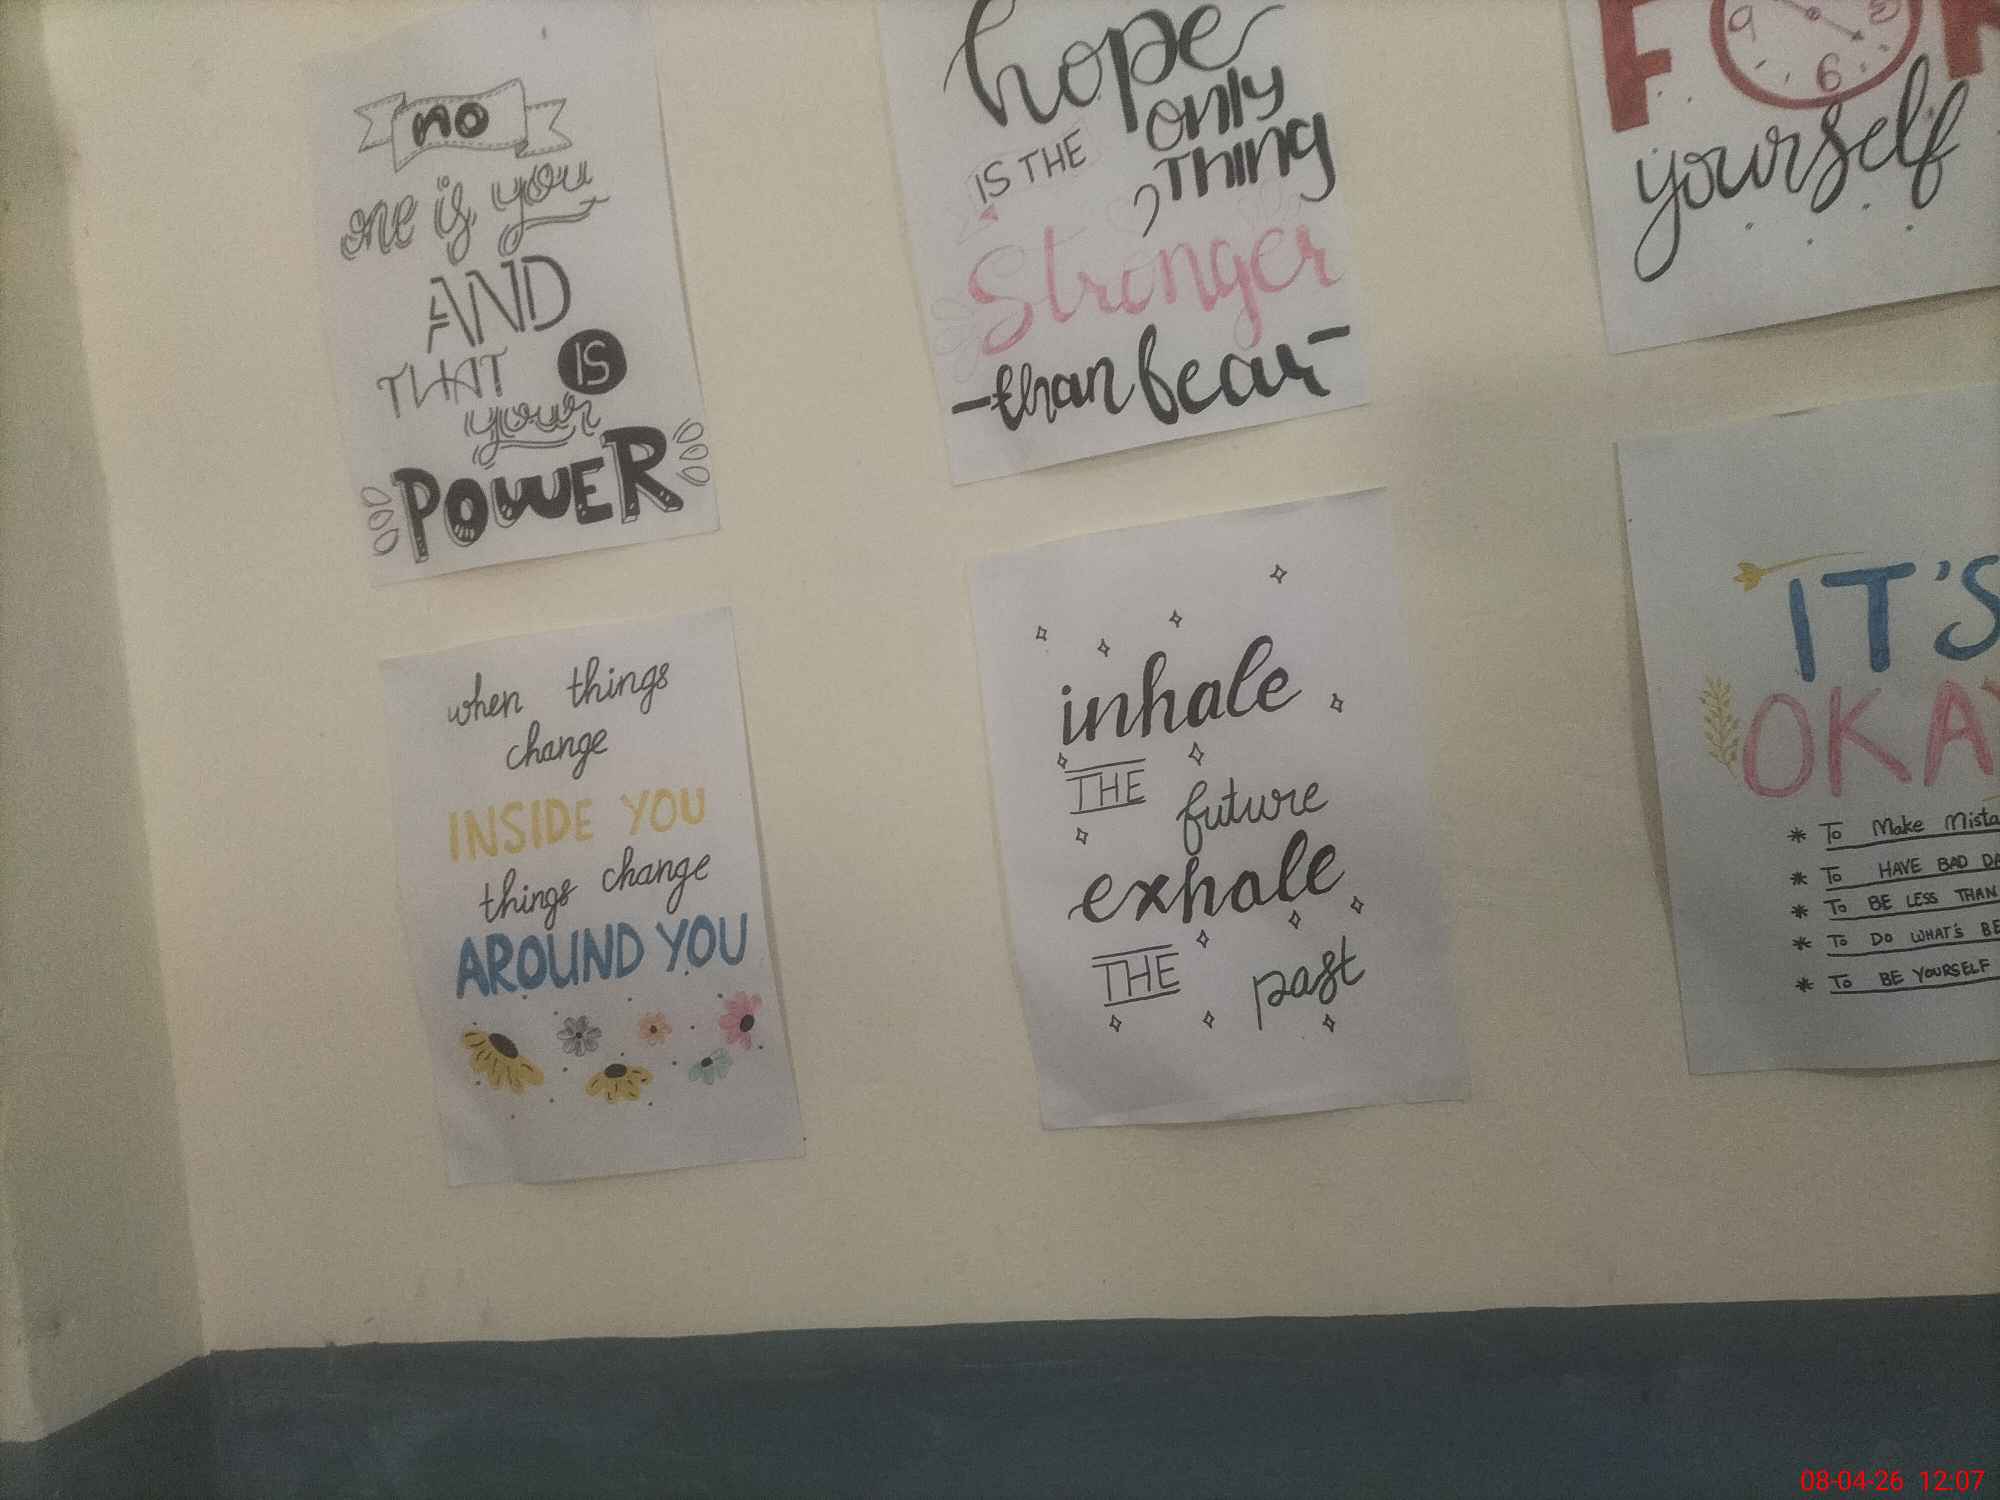 no
one is you
AND
THAT IS
your
POWER
hope
IS THE only
THING
Stronger
-than fear-
FOR
9 6
yourself
when things
change
INSIDE YOU
things change
AROUND YOU
inhale
THE
future
exhale
THE
past
IT'S
OKAY
* To Make
* To HAVE BAD
* To BE LESS THAN
* To DO WHAT'S
* To BE YOURSELF
08-04-26 12:07